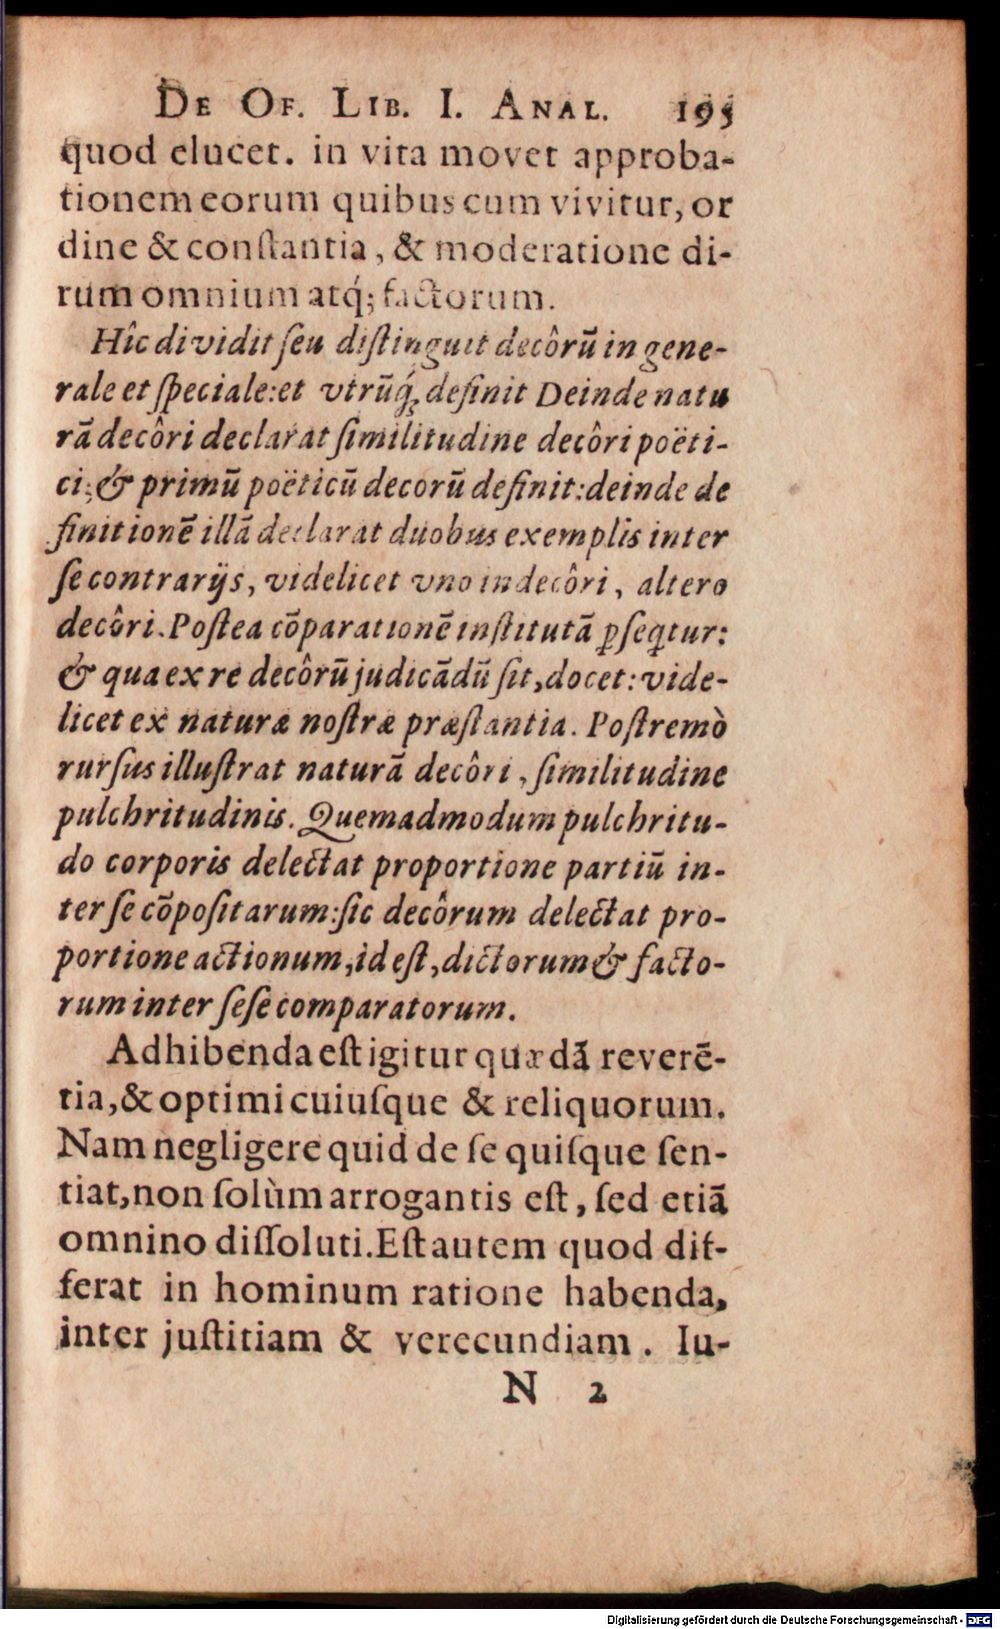 DE OF. LIB. I. ANAL. 195
quod elucet. in vita movet approba-
tionem eorum quibus cum vivitur, or
dine & conſtantia, & moderatione di-
rum omnium atq́; factorum.
Hîc dividit ſeu diſtinguit decôrū in gene-
rale et ſpeciale: et vtrūq́; definit Deinde natu
rā decôri declarat ſimilitudine decôri poëti-
ci; & primū poëticū decorū definit: deinde de
finitionē illā declarat duobus exemplis inter
ſe contrarijs, videlicet vno indecôri, altero
decôri. Poſtea cōparationē inſtitutā ꝑſeq̃tur:
& qua ex re decôrū judicādū ſit, docet: vide-
licet ex naturæ noſtræ præſtantia. Poſtremò
rurſus illuſtrat naturā decôri, ſimilitudine
pulchritudinis. Quemadmodum pulchritu-
do corporis delectat proportione partiū in-
ter ſe cōpoſitarum: ſic decôrum delectat pro-
portione actionum, id eſt, dictorum & facto-
rum inter ſeſe comparatorum.
Adhibenda eſt igitur quædā reverē-
tia, & optimi cuiuſque & reliquorum.
Nam negligere quid de ſe quiſque ſen-
tiat, non ſolùm arrogantis eſt, ſed etiā
omnino diſſoluti. Eſt autem quod dif-
ferat in hominum ratione habenda,
inter juſtitiam & verecundiam. Iu-
N 2
Digitalisierung gefördert durch die Deutsche Forschungsgemeinschaft - DFG